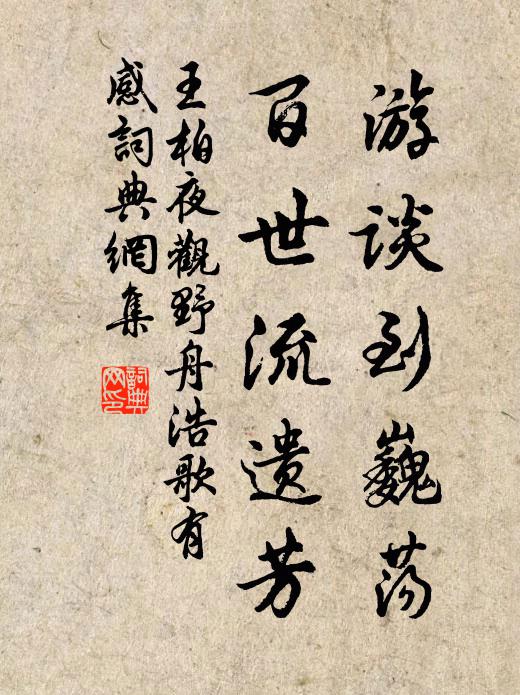 游谈到巍荡
百世流遗芳
王柏夜觀野舟浩歌有
感詞典網集
詞典网印